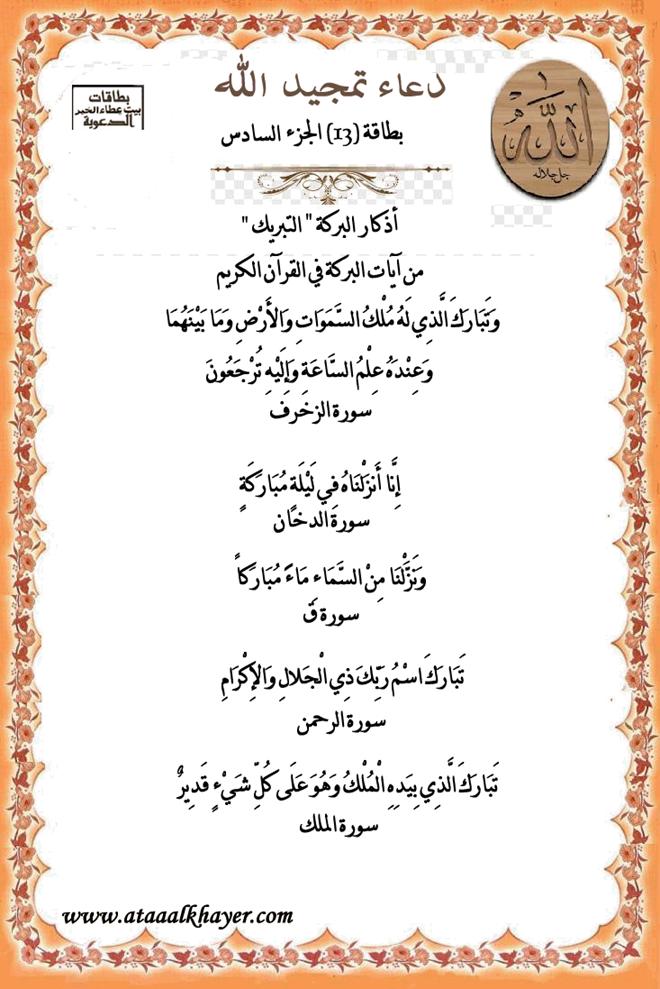 دعاء تمجيد الله
بطاقات
بيت عطاء الخير
الدعوية
الله
جل جلاله
بطاقة (13) الجزء السادس
أذكار البركة " التبريك "
من آيات البركة في القرآن الكريم
وَتَبَارَكَ الَّذِي لَهُ مُلْكُ السَّمَوَاتِ وَالأَرْضِ وَمَا بَيْنَهُمَا
وَعِنْدَهُ عِلْمُ السَّاعَةِ وَإِلَيْهِ تُرْجَعُونَ
سورة الزخرف
إِنَّا أَنزَلْنَاهُ فِي لَيْلَةٍ مُبَارَكَةٍ
سورة الدخان
وَنَزَّلْنَا مِنْ السَّمَاءِ مَاءً مُبَارَكاً
سورة ق
تَبَارَكَ اسْمُ رَبِّكَ ذِي الْجَلالِ وَالإِكْرَامِ
سورة الرحمن
تَبَارَكَ الَّذِي بِيَدِهِ الْمُلْكُ وَهُوَ عَلَى كُلِّ شَيْءٍ قَدِيرٌ
سورة الملك
www.ataaalkhayer.com